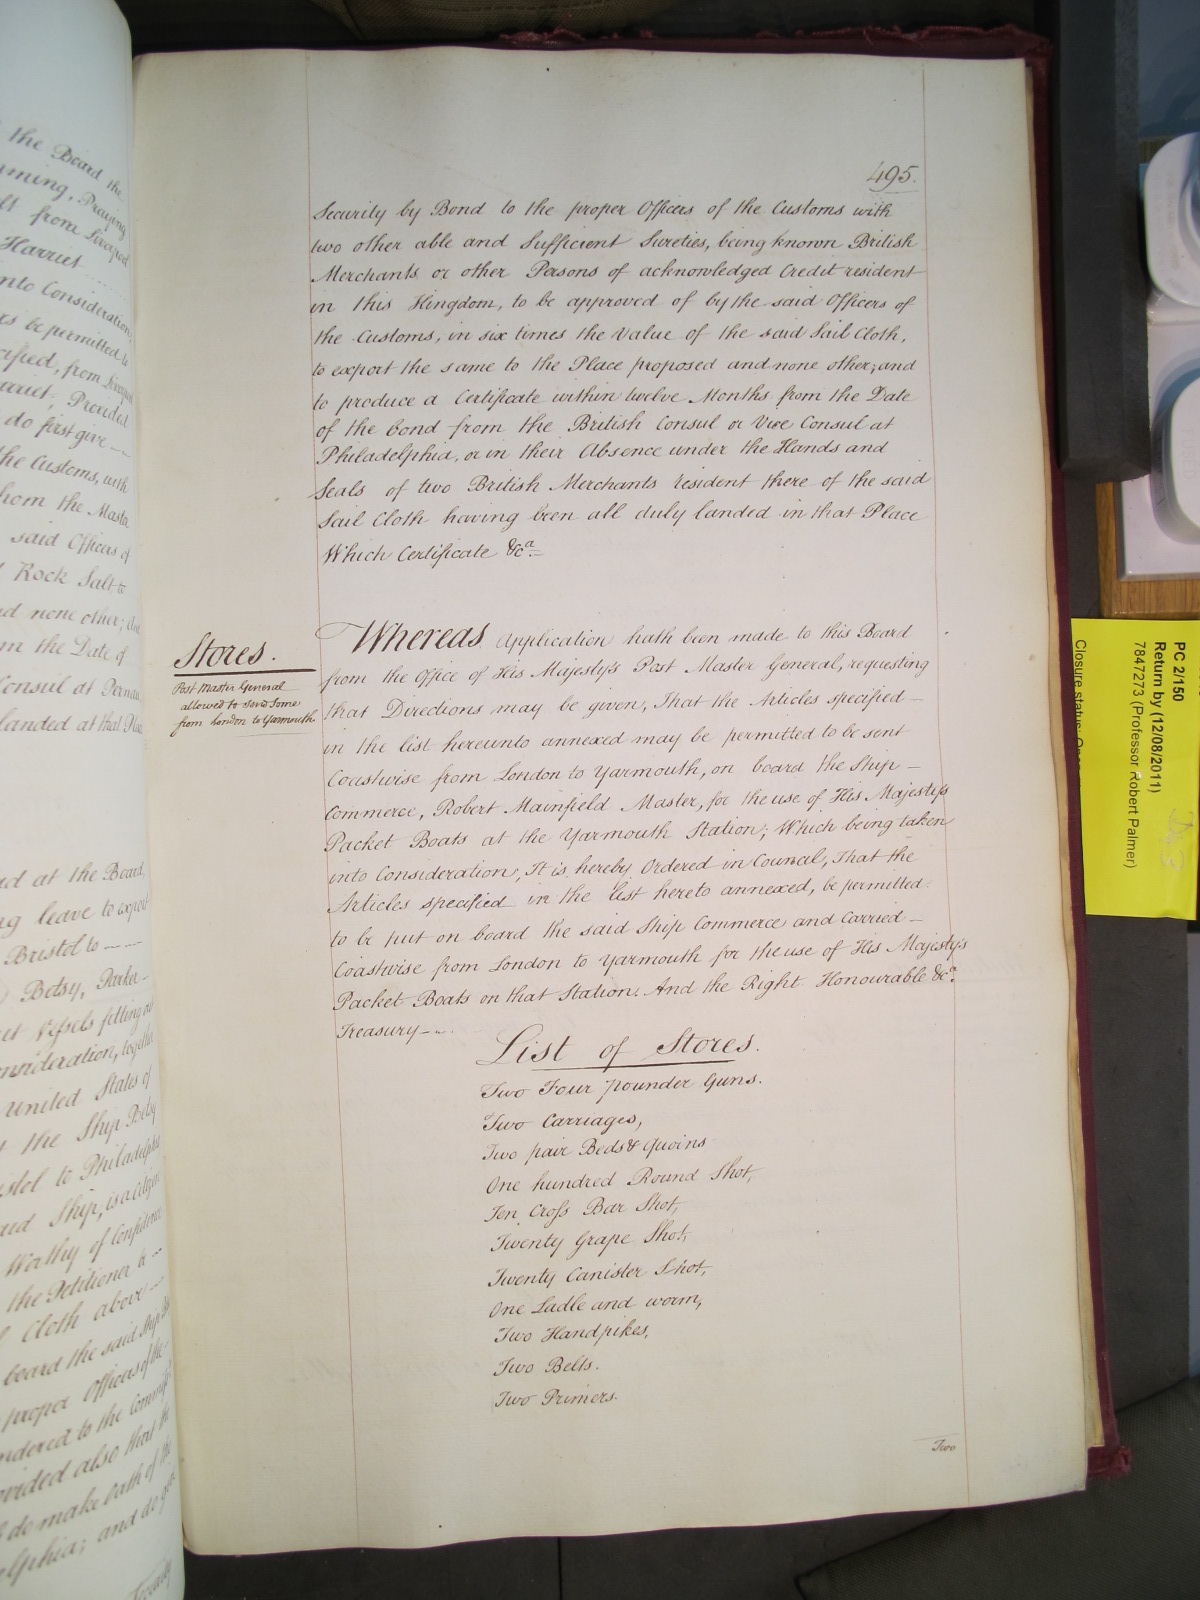 the Board the
Praying
from Liverpool
Harriet
into Consideration,
be permitted to
from Liverpool
Provided
do first give
the Customs, with
whom the Master
said Officers of
Rock Salt to
and none other; and
from the Date of
Consul at
landed at that Place
at the Board,
leave to export
Bristol to
Betsy, Parker
Vessels fitting out
Consideration, together
United States of
the Ship Betsy
Bristol to Philadelphia
said Ship, is a Citizen
Worthy of Confidence
the Petitioner to
Cloth above
board the said Ship
proper Officers of the
to the Commissrs
provided also that the
do make Oath of the
and do give
495.
Security by Bond to the proper Officers of the Customs with
two other able and Sufficient Sureties, being known British
Merchants or other Persons of acknowledged Credit resident
in this Kingdom, to be approved of by the said Officers of
the Customs, in six times the Value of the said Sail Cloth,
to export the same to the Place proposed and none other; and
to produce a Certificate within twelve Months from the Date
of the bond from the British Consul or Vice Consul at
Philadelphia, or in their Absence under the Hands and
Seals of two British Merchants resident there of the said
Sail Cloth having been all duly landed in that Place
Which Certificate &ca.
Stores.
Post Master General
allowed to send some
from London to Yarmouth
Whereas Application hath been made to this Board
from the Office of His Majesty's Post Master General, requesting
that Directions may be given, That the Articles specified
in the list hereunto annexed may be permitted to be sent
Coastwise from London to Yarmouth, on board the Ship
Commerce, Robert Mainfield Master, for the use of His Majesty's
Packet Boats at the Yarmouth Station; Which being taken
into Consideration, It is hereby Ordered in Council, That the
Articles specified in the list hereto annexed, be permitted
to be put on board the said Ship Commerce and Carried
Coastwise from London to Yarmouth for the use of His Majesty's
Packet Boats on that Station. And the Right Honourable &ca.
Treasury
List of Stores.
Two Four pounder Guns.
Two Carriages,
Two pair Beds & Quoins
One hundred Round Shot,
Ten Cross Bar Shot,
Twenty Grape Shot,
Twenty Canister Shot,
One Ladle and worm,
Two Handpikes,
Two Belts.
Two Primers.
Two
PC 2/150
Return by (12/08/2011)
7847273 (Professor Robert Palmer)
Closure status: Open